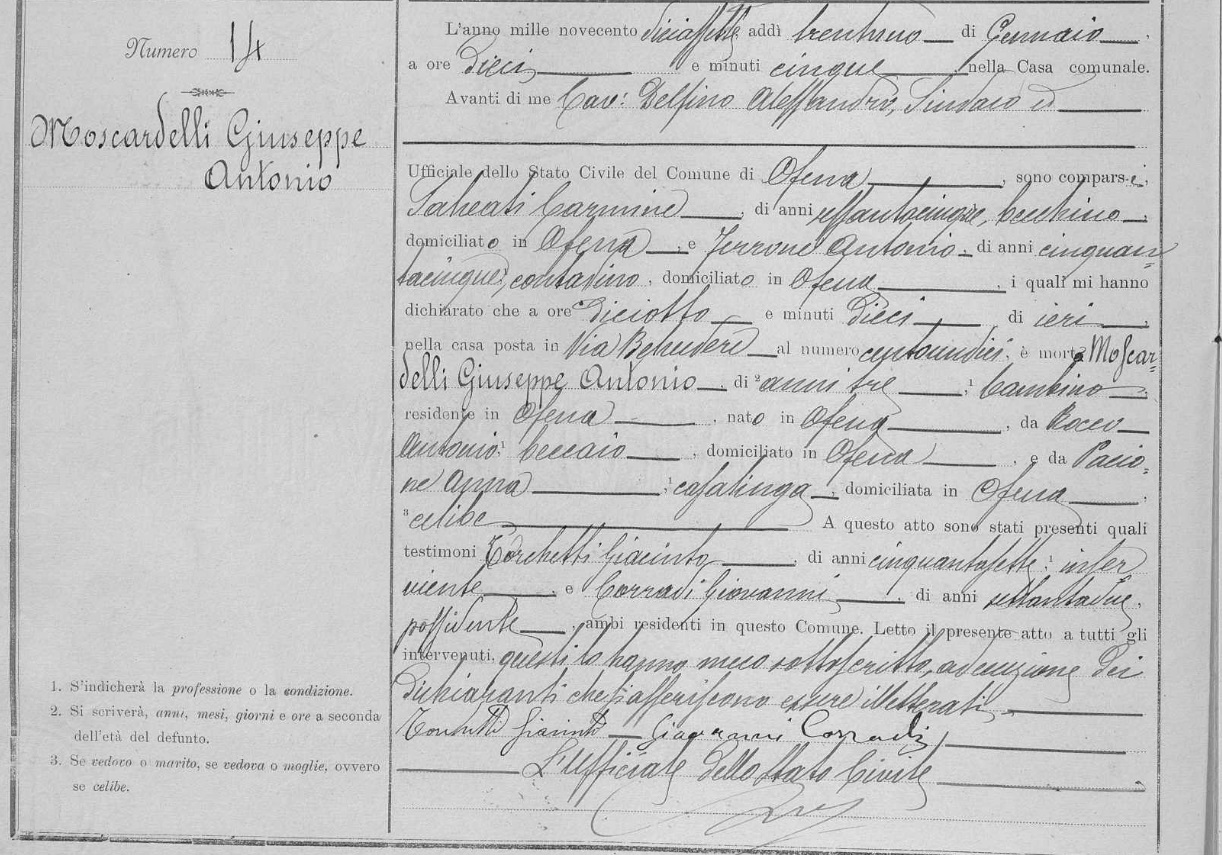 Numero 14
Moscardelli Giuseppe
Antonio
1. S'indicherà la professione o la condizione.
2. Si scriverà, anni, mesi, giorni e ore a seconda
dell'età del defunto.
3. Se vedovo o marito, se vedova o moglie, ovvero
se celibe.
L'anno mille novecento diciassette addì trentuno di Gennaio,
a ore dieci e minuti cinque nella Casa comunale.
Avanti di me Cav: Delfino Alessandro, Sindaco ed
Ufficiale dello Stato Civile del Comune di Ofena, sono comparsi,
Carmine, di anni, becchino,
domiciliato in Ofena, e Antonio, di anni cinquan=
tacinque, contadino, domiciliato in Ofena, i quali mi hanno
dichiarato che a ore diciotto e minuti dieci, di ieri,
nella casa posta in Via Belvedere al numero centoundici, è morto Moscar=
delli Giuseppe Antonio, di ²anni tre, ¹ bambino
residente in Ofena, nato in Ofena, da Rocco
Antonio, ¹ beccaio, domiciliato in Ofena, e da Pacio=
ne Anna, ¹ casalinga, domiciliata in Ofena,
³ celibe A questo atto sono stati presenti quali
testimoni Torchetti Giacinto, di anni cinquantasette, ¹ inser
viente, e Corradi Giovanni, di anni settantadue,
possidente, ambi residenti in questo Comune. Letto il presente atto a tutti gli
intervenuti, questi lo hanno meco sottoscritto, ad eccezione dei
dichiaranti che asseriscono essere illetterati
Giacinto Giovanni Corradi
L'Ufficiale dello Stato Civile